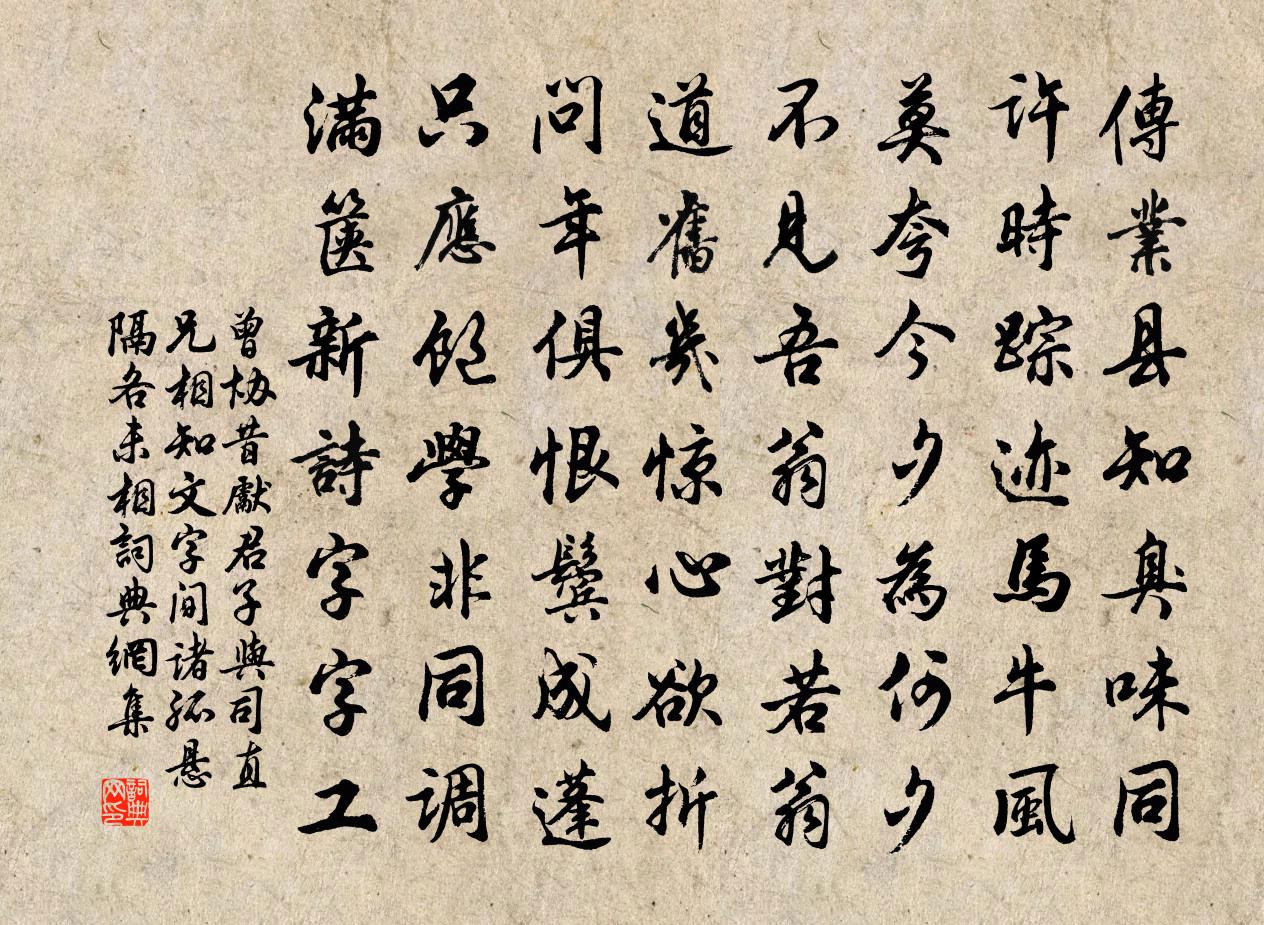 傳業县知臭味同
許時踪迹馬牛風
莫夸今夕為何夕
不見吾翁對若翁
道舊幾惊心欲折
問年俱恨鬓成蓬
只應飽學非同调
滿篋新詩字字工
曾协昔獻君子與司直
兄相知文字间諸孤悬
隔各未相詞典網集
詞典网印